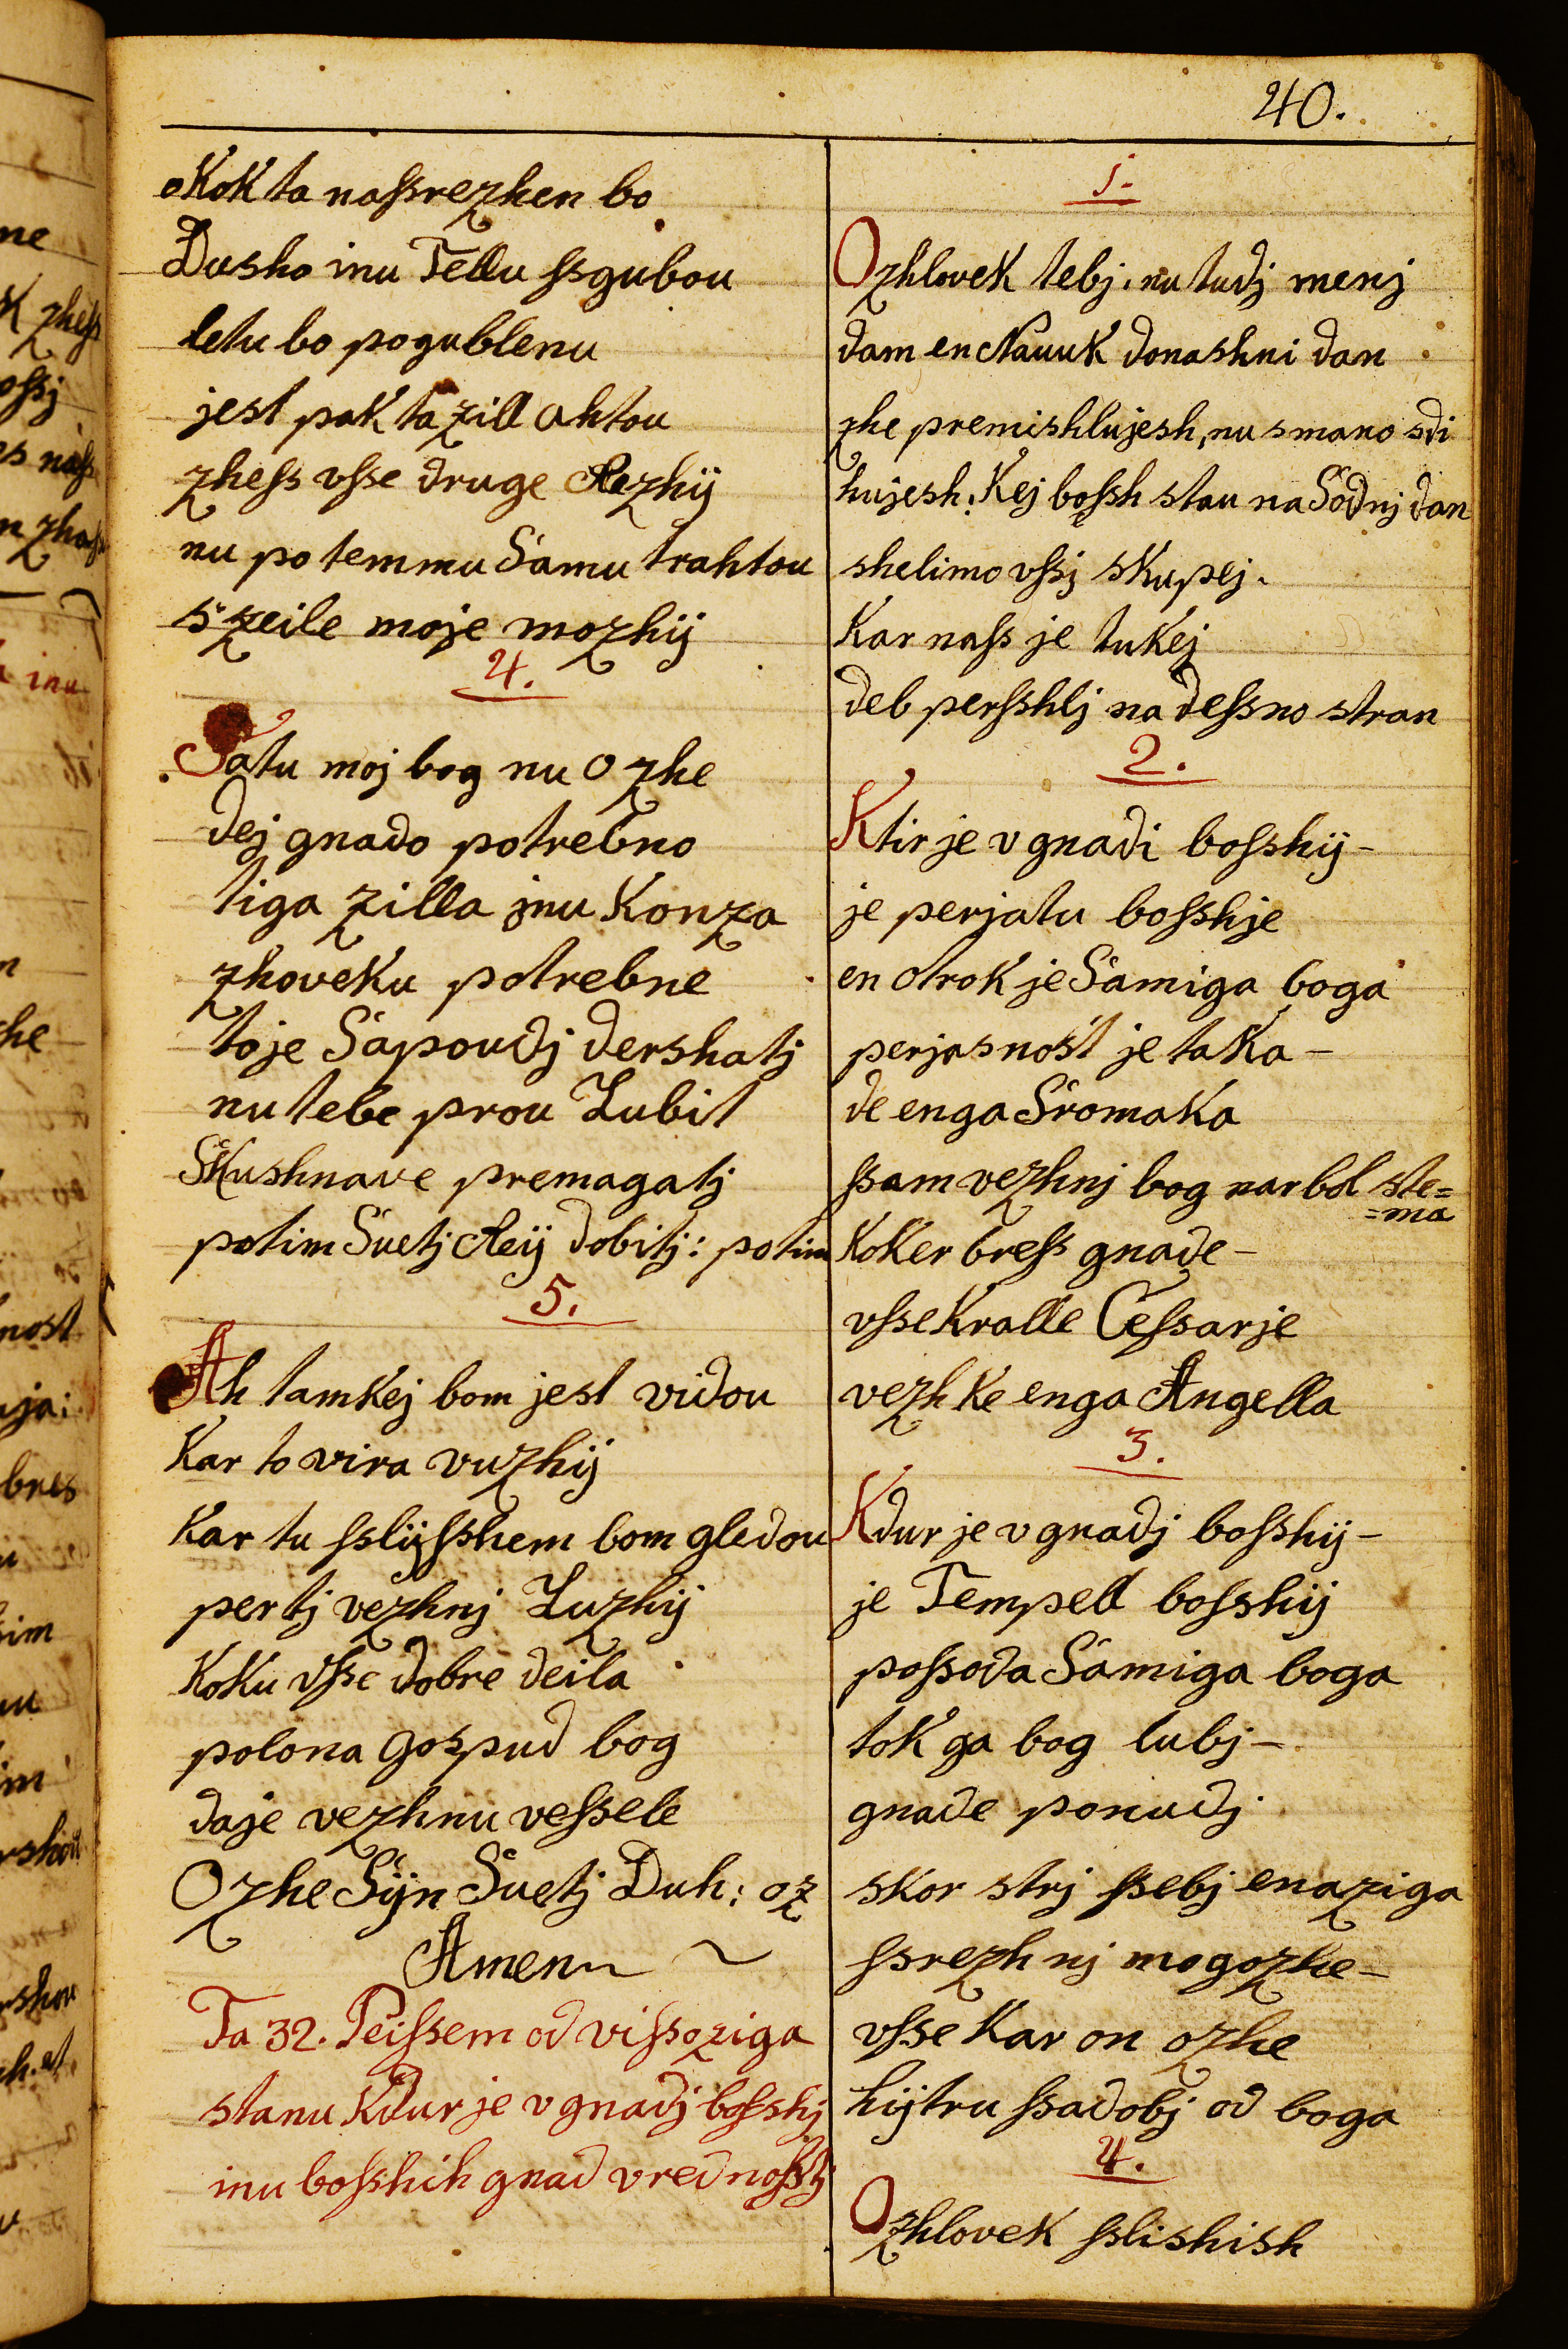 40.
oKoK ta naſsrezhen bo
Dusho inu Tellu ſsgubou
letu bo pogublenu
jest pak ta zill ahtou
zheſs vſse druge Rezhÿ
nu po temmu Samu trahtou
s zeile moje mozhÿ
4.
Satu moj bog nu Ozhe
dej gnado potrebno
tiga zilla jnu Konza
zhoveKu potrebne
to je Sapoudj dershatj
nu tebe prou Lubit
SKushnave premagatj
potim Suetj Reÿ dobitj: potim
5.
Ah tamkej bom jest vidou
Kar to vira vuzhÿ
Kar tu ſslÿſshem bom gledou
per tj vezhnj Luzhÿ
KoKu vſse dobre deila
polona Gospud bog
daje vezhnu veſsele
Ozhe Sÿn Suetj Duh: oz
Amen
Ta 32. Peiſsem od viſsoziga
stanu Kdur je v gnadj boſshj
inu boſshih gnad vrednoſstj
1.
O zhloveK tebj, nu tudj menj
dam en NauuK donashni dan
zhe premishlujesh, nu s mano sdi
hujesh. Kej boſsh stau na Sodnj dan
shelimo vſsj sKupej.
Kar naſs je tuKej
deb perſshlj na deſsno stran
2.
Ktir je v gnadi boſshÿ-
je perjatu boſshje
en otroK je Samiga boga
perjasnost je taKa-
de enga SromaKa
ſsam vezhnj bog narbol ste=
=ma
KoKer breſs gnade-
vſse Kralle Ceſsarje
vezh Ke enga Angella
3.
Kdur je v gnadj boſshÿ-
je Tempell boſshÿ
poſsoda Samiga boga
toK ga bog lubj-
gnade ponudj
skor strj ſsebj enaziga
ſsrezhnj mogozhe-
vſse Kar on ozhe
hÿtru ſsadobj od boga
4.
O zhloveK ſslishish